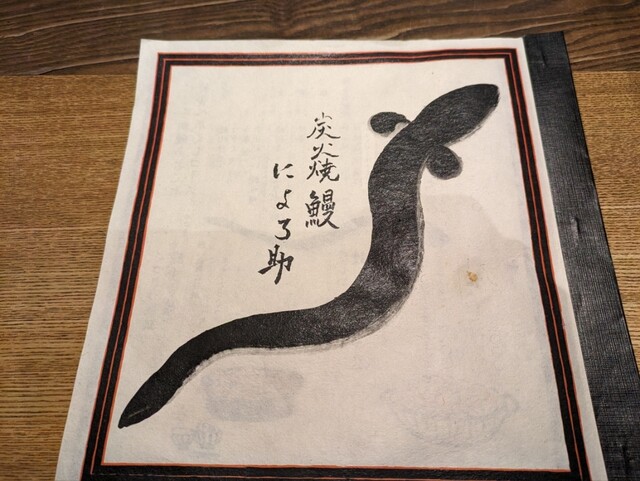 炭火焼鰻
によろ助